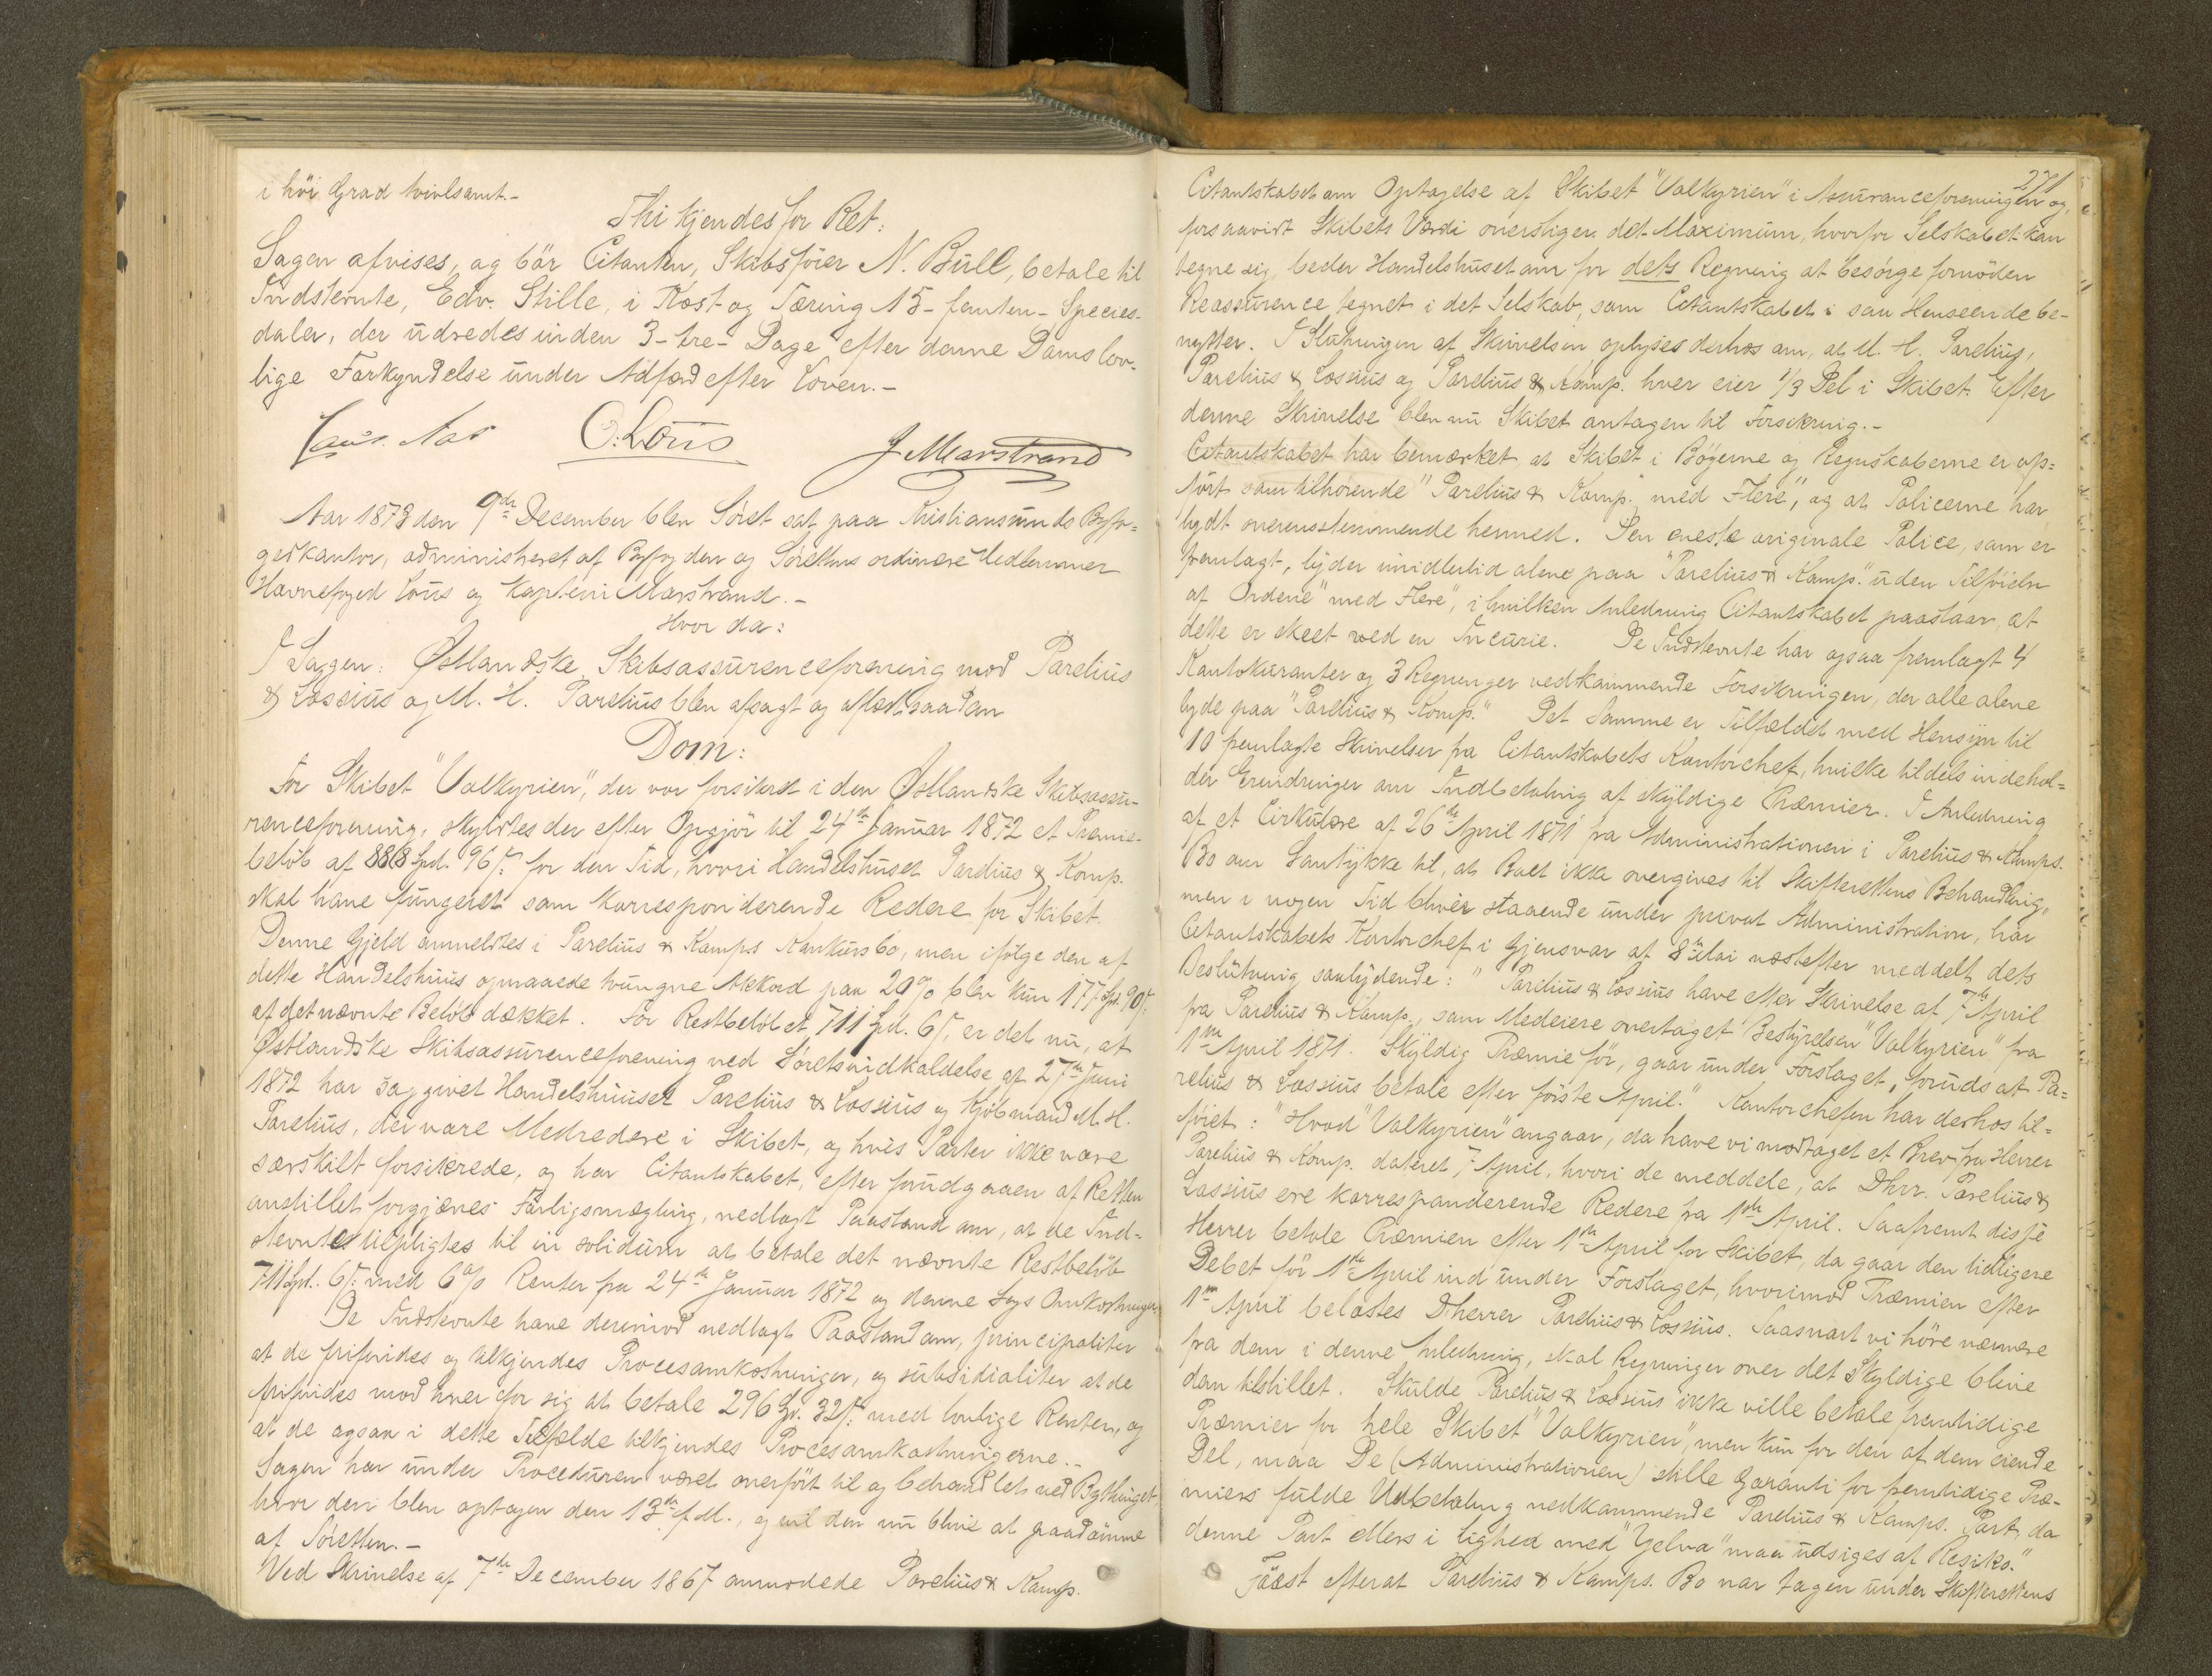 i høi Grad tvivlsamt.-
Thi kjendes for Ret:
Sagen afvises, og bør Citanten, Skibsfører N. Bull, betale til
Indstevnte, Edv. Stille, i Kost og Tæring 15- femten- Species-
daler, der udredes inden 3- tre- Dage efter denne Doms lov-
lige Forkyndelse under Adfærd efter Loven.-
O. Lous J Marstrand
Aar 1873 den 9de December blev Søret sat paa Kristiansunds Byfo-
gedkontor, administreret af Byfogden og Sørettens ordinære Medlemmer
Havnefoged Lous og Kaptein Marstrand.-
Hvor da:
I Sagen: Østlandske Skibsassuranceforening mod Parelius
& Lossius og M. H. Parelius blev afsagt og aflæst saadan
Dom:
For Skibet "Valkyrien", der var forsikret i den Østlandske Skibsassu-
ranceforening, skyldtes der efter Opgjør til 24de Januar 1872 et Præmie-
beløb af 888 Spd. 96 s. for den Tid, hvori Handelshuset Parelius & Komp.
skal have fungeret som korresponderende Redere for Skibet.
Denne Gjeld anmeldtes i Parelius & Komps Konkursbo, men ifølge den af
dette Handelshuus opnaaede tvungne Akkord paa 20% blev kun 177 Spd. 90 s.
af det nævnte Beløb dækket. For Restbeløbet 711 Spd. 6 s. er det nu, at
Østlandske Skibsassuranceforening ved Søretsindkaldelse af 27de Juni
1872 har sagsgivet Handelshuuset Parelius & Lossius og Kjøbmand M. H.
Parelius, der vare Medredere i Skibet, og hvis Parter ikke vare
særskilt forsikrede, og har Citantskabet, efter forudgaaen af Retten
anstillet forgjæves Forligsmægling, nedlagt Paastand om, at de Ind-
stevnte tilpligtes til in solidum at betale det nævnte Restbeløb
711 Spd. 6 s. med 6% Renter fra 24de Januar 1872 og denne Sags Omkostninger.
De Indstevnte have derimod nedlagt Paastand om, principaliter
at de frifindes og tilkjendes Procesomkostninger, og subsidialiter at de
frifindes mod hver for sig at betale 296 Spd. 32 s. med lovlige Renter, og
at de ogsaa i dette Tilfælde tilkjendes Procesomkostningerne.-
Sagen har under Proceduren været overført til og behandlet ved Bythinget,
hvor den blev optagen den 13de f. M., og vil den nu blive at paadømme
af Søretten.-
Ved Skrivelse af 7de December 1867 anmodede Parelius & Komp.
271
Citantskabet om Optagelse af Skibet "Valkyrien" i Assuranceforeningen og,
forsaavidt Skibets Værdi overstiger det Maximum, hvorfor Selskabet kan
tegne sig, beder Handelshuset om for dets Regning at besørge fornøden
Reassurence tegnet i det Selskab, som Citantskabet i saa Henseende be-
nytter. I Slutningen af Skrivelsen oplyses derhos om, at M. H. Parelius,
Parelius & Lossius og Parelius & Komp. hver eier 1/3 Del i Skibet. Efter
denne Skrivelse blev nu Skibet antagen til Forsikring.-
Citantskabet har bemærket, at Skibet i Bøgerne og Regnskaberne er op-
ført som tilhørende "Parelius & Komp. med Flere", og at Policerne har
lydt overensstemmende hermed. Den eneste originale Police, som er
fremlagt, lyder imidlertid alene paa "Parelius & Komp." uden Tilføieln
af Ordene "med Flere", i hvilken Anledning Citantskabet paastaar, at
dette er skeet ved en Incurie. De Indstevnte har ogsaa fremlagt 4
Kontokuranter og 3 Regninger vedkommende Forsikringen, der alle alene
lyde paa "Parelius & Komp." Det Samme er Tilfældet med Hensyn til
10 fremlagte Skrivelser fra Citantskabets Kontorchef, hvilke tildels indehol-
der Erindringer om Indbetaling af skyldige Præmier. I Anledning
af et Cirkulære af 26de April 1871 fra Administrationen i Parelius & Komps.
Bo om Samtykke til, at Boet ikke overgives til Skifterettens Behandling,
men i nogen Tid bliver staaende under privat Administration, har
Citantskabets Kontorchef i Gjensvar af 8de Mai næstefter meddelt dets
Beslutning saalydende: "Parelius & Lossius have efter Skrivelse af 7de April
fra Parelius & Komp., som Medeiere overtaget Bestyrelsen "Valkyrien" fra
1ste April 1871. Skyldig Præmie før, gaar under Forslaget, forudsat Pa-
relius & Lossius betale efter første April." Kontorchefen har derhos til-
føiet: "Hvad "Valkyrien" angaar, da have vi modtaget et Brev fra Herrer
Parelius & Komp. dateret 7 April, hvori de meddele, at Dhrr. Parelius &
Lossius ere korresponderende Redere fra 1ste April. Saafremt disse
Herrer betale Præmien efter 1ste April for Skibet, da gaar den tidligere
Debet før 1ste April ind under Forslaget, hvorimod Præmien efter
1ste April belastes Dherrer Parelius & Lossius. Saasnart vi høre nærmere
fra dem i denne Anledning, skal Regninger over det Skyldige blive
dem tilstillet. Skulde Parelius & Lossius ikke ville betale fremtidige
Præmier for hele Skibet "Valkyrien", men kun for den af dem eiende
Del, maa De (Administrationen) stille Garanti for fremtidige Præ-
miers fulde Udbetaling vedkommende Parelius & Komps. Part, da
denne Part ellers i Lighed med "Gelva" maa udsiges af Resiko."
Først efterat Parelius & Komps. Bo var tagen under Skifterettens